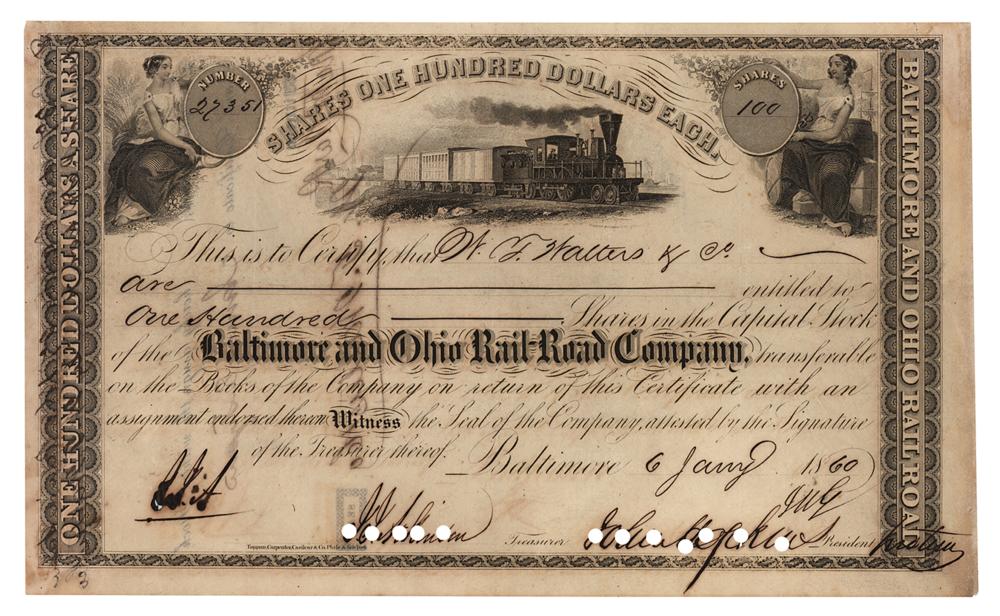 NUMBER
27351
SHARES ONE HUNDRED DOLLARS EACH.
SHARES
100
ONE HUNDRED DOLLARS A SHARE
BALTIMORE AND OHIO RAIL ROAD
This is to Certify, that W. T. Walters & Co
are entitled to
One Hundred Shares in the Capital Stock
of the Baltimore and Ohio Rail-Road Company, transferable
on the Books of the Company on return of this Certificate with an
assignment endorsed thereon Witness the Seal of the Company, attested by the Signature
of the Treasurer thereof. Baltimore 6 Jany 1860
Toppan, Carpenter, Casilear & Co. Phila. & New York
Treasurer
President protem
3 3